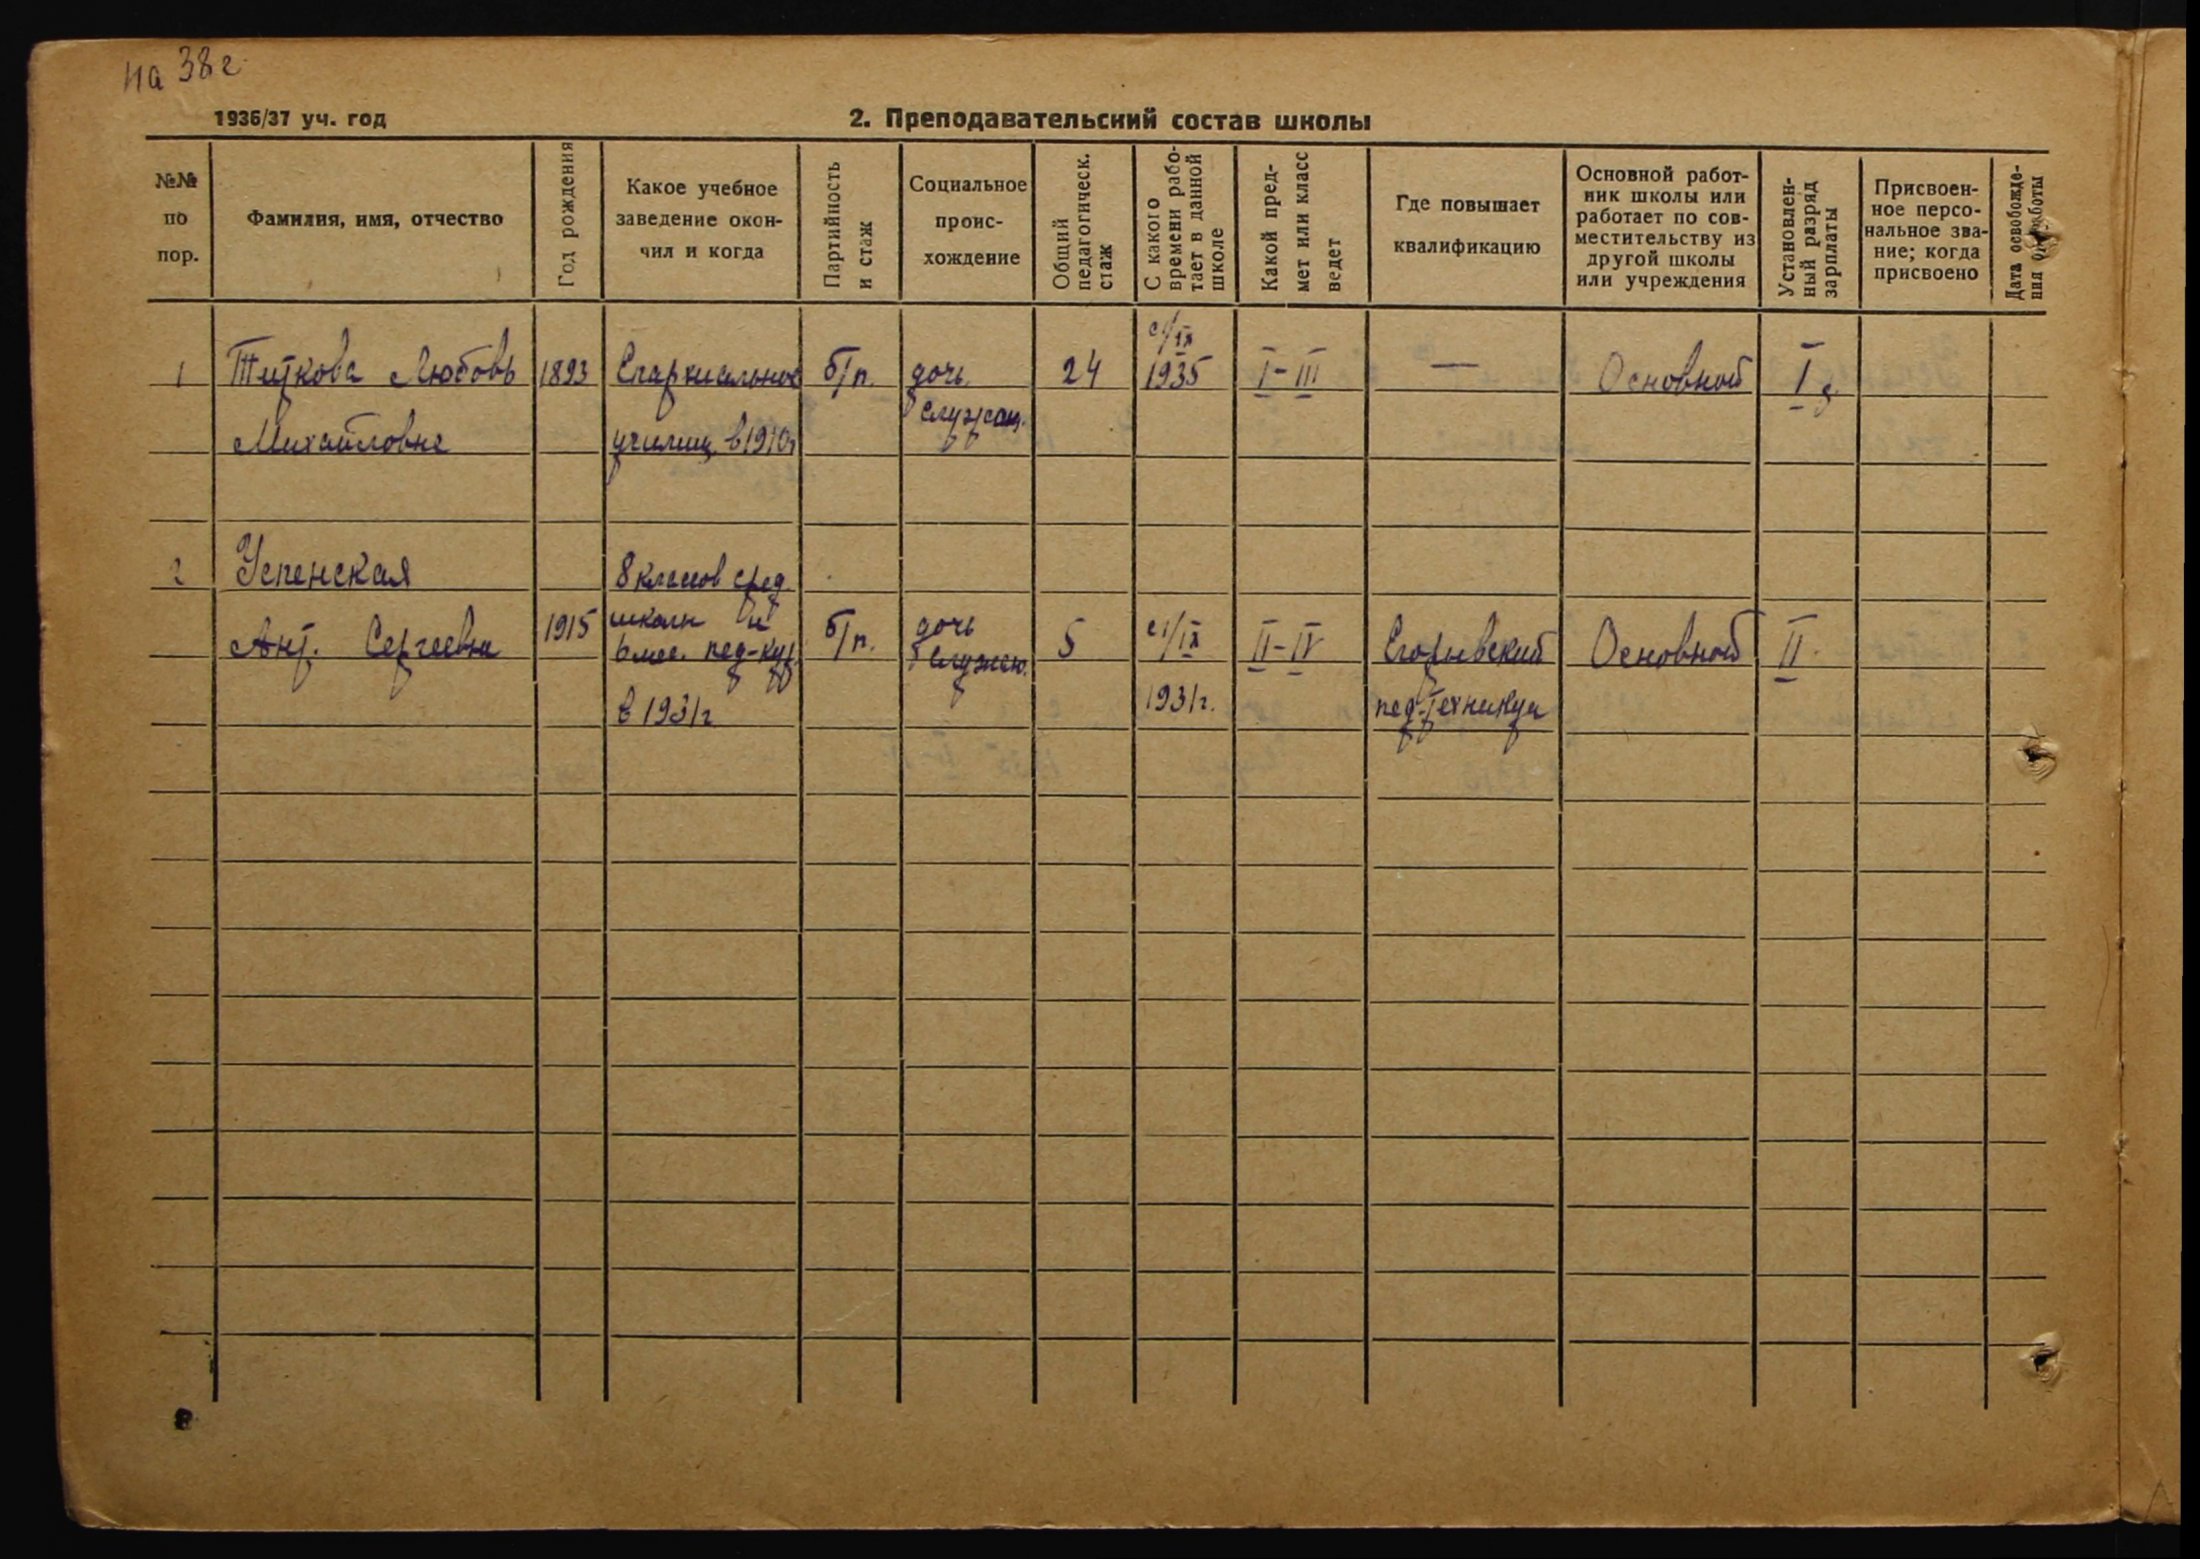 на 38 г.
1936/37 уч. год
2. Преподавательский состав школы
№№ по пор.
Фамилия, имя, отчество
Год рождения
Какое учебное заведение окончил и когда
Партийность и стаж
Социальное происхождение
Общий педагогическ. стаж
С какого времени работает в данной школе
Какой предмет или класс ведет
Где повышает квалификацию
Основной работник школы или работает по совместительству из другой школы или учреждения
Установленный разряд зарплаты
Присвоенное персональное звание; когда присвоено
Дата освобождения от работы
1 Титкова Любовь 1893 Епархиальное б/п. дочь 24 с 1/IX 1935 I-III — Основной I
Михайловна училищ. в 1910г служащ.
2 Успенская 8 классов сред.
Ант. Сергеевна 1915 школы и б/п. дочь 5 с 1/IX II-IV Егорьевский Основной II
6 мес. пед-кур. служащ.
в 1931г 1931г. пед-техникум
8